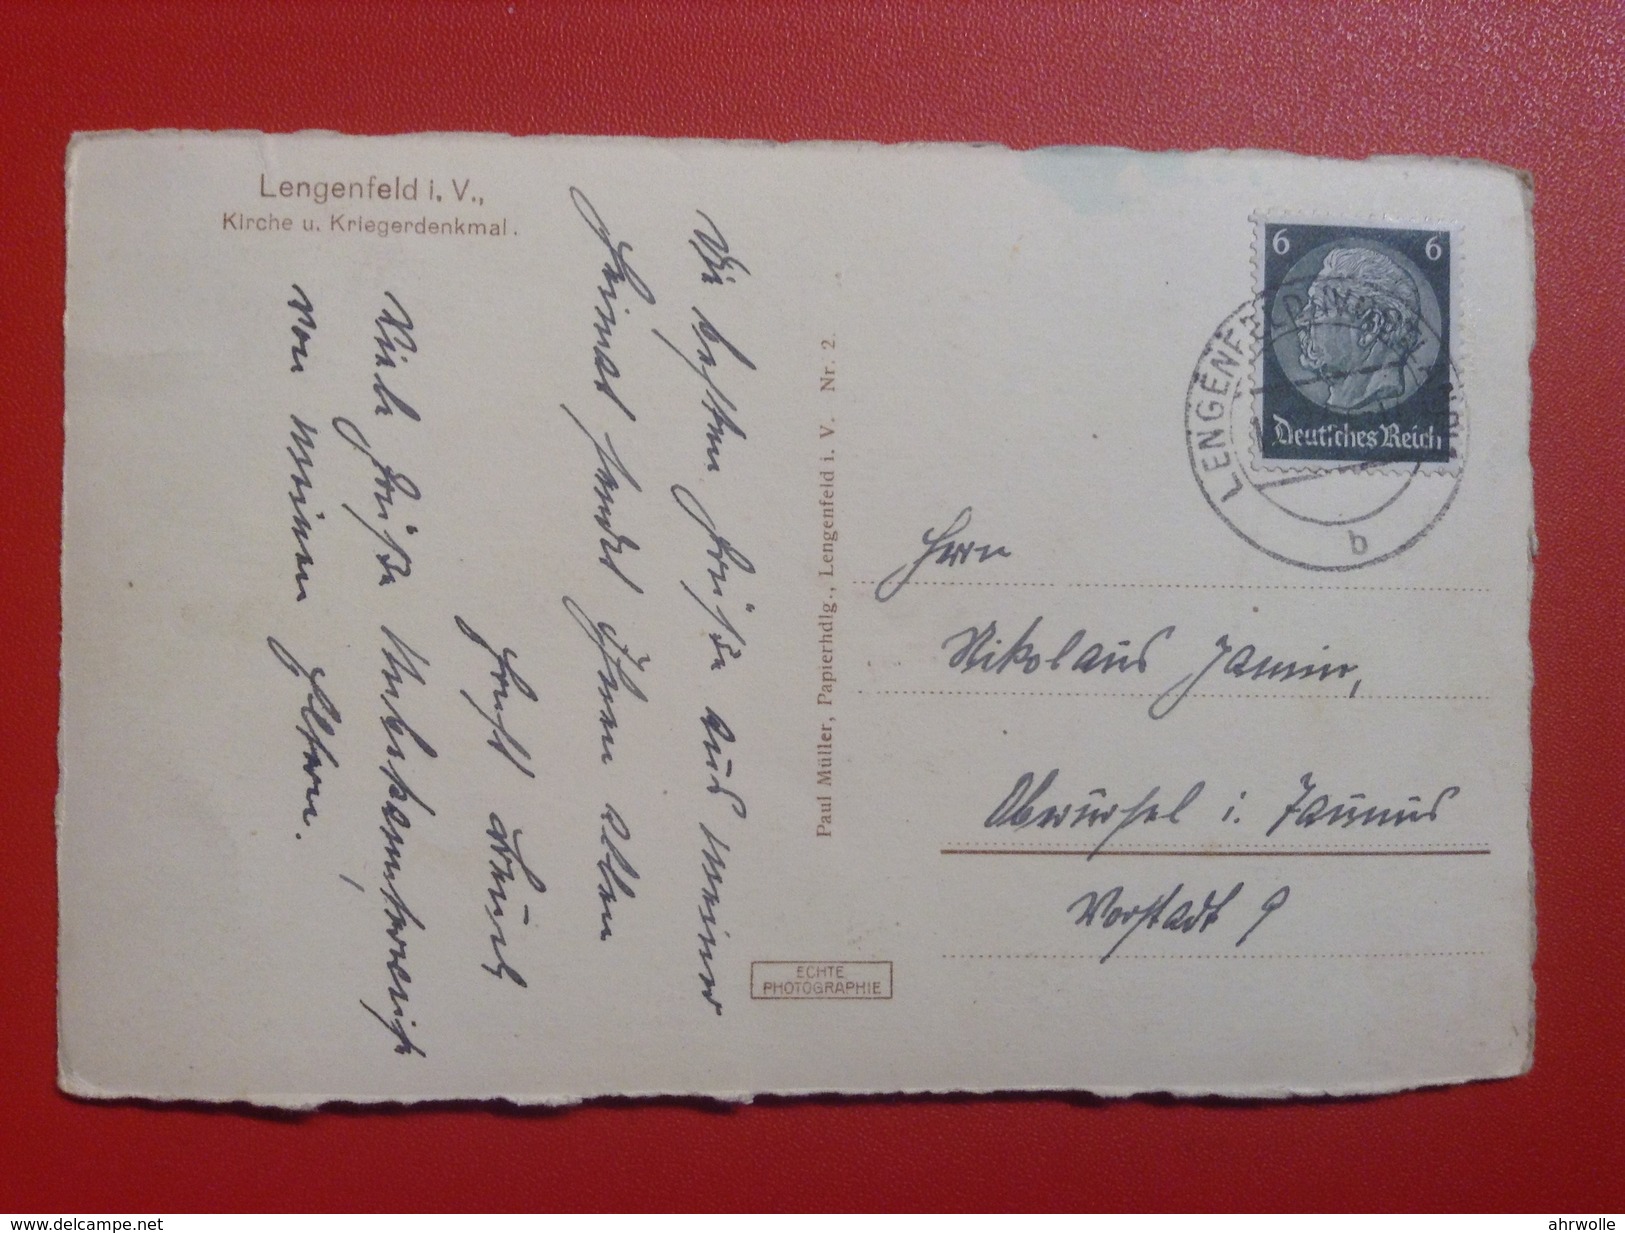 Lengenfeld i. V.,
Kirche u. Kriegerdenkmal.
Die besten Grüße aus meiner
Heimat sendet Ihnen allen
Ernst
Viele Grüße unbekannterweise
von meinen Eltern.
Paul Müller, Papierhdlg., Lengenfeld i. V. Nr. 2.
ECHTE
PHOTOGRAPHIE
6 6
Deutsches Reich
LENGENFELD
b
Herrn
Nikolaus Jamin,
Oberursel i. Taunus
Vorstadt 9
www.delcampe.net
ahrwolle